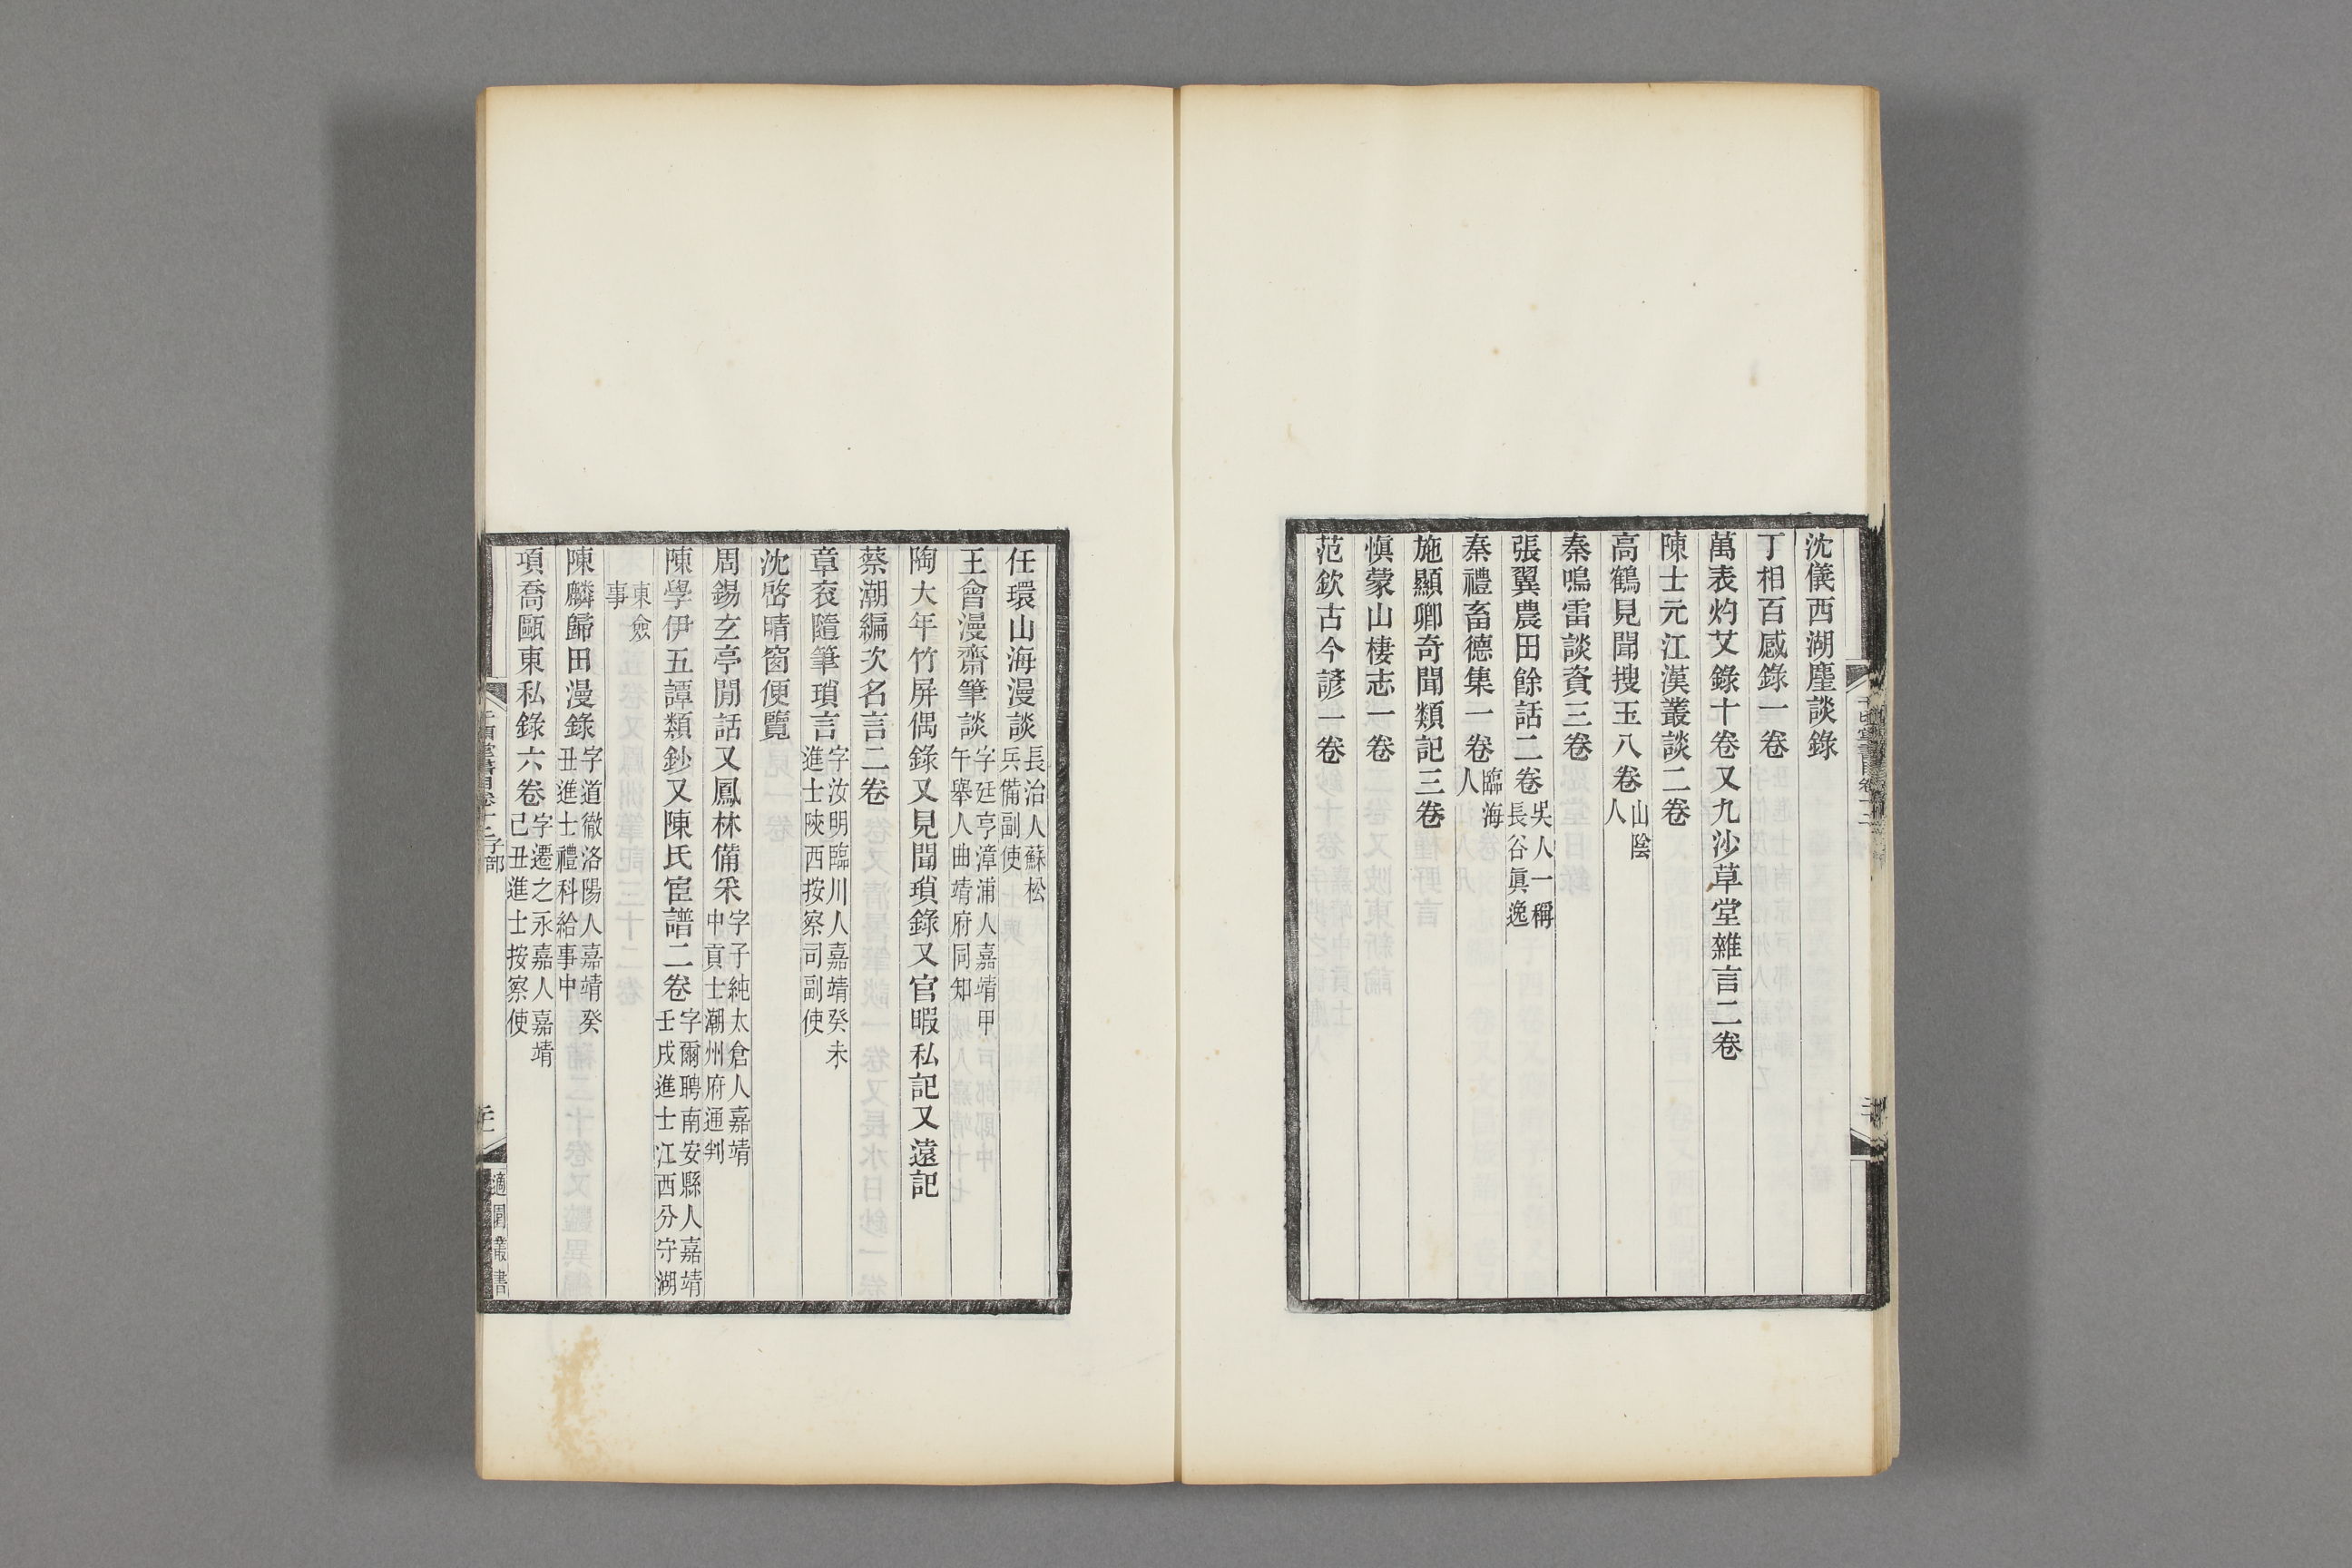 沈儀西湖麈談錄
丁相百感錄一卷
萬表灼艾錄十卷又九沙草堂雜言二卷
陳士元江漢叢談二卷
高鶴見聞搜玉八卷山陰人
秦鳴雷談資三卷
張翼農田餘話二卷吳人一稱長谷眞逸
秦禮畜德集一卷臨海人
施顯卿奇聞類記三卷
愼蒙山棲志一卷
范欽古今諺一卷
任環山海漫談長治人蘇松兵備副使
王會漫齋筆談字廷亨漳浦人嘉靖甲午舉人曲靖府同知
陶大年竹屏偶錄又見聞瑣錄又官暇私記又遠記
蔡潮編次名言二卷
章袞隨筆瑣言字汝明臨川人嘉靖癸未進士陝西按察司副使
沈啓晴窗便覽
周錫玄亭閒話又鳳林備釆字子純太倉人嘉靖中貢士潮州府通判
陳學伊五譚類鈔又陳氏宦譜二卷字爾聘南安縣人嘉靖壬戌進士江西分守湖
東僉事
陳麟歸田漫錄字道徹洛陽人嘉靖癸丑進士禮科給事中
項喬甌東私錄六卷字遷之永嘉人嘉靖己丑進士按察使
千頃堂書目卷十二子部
適園叢書